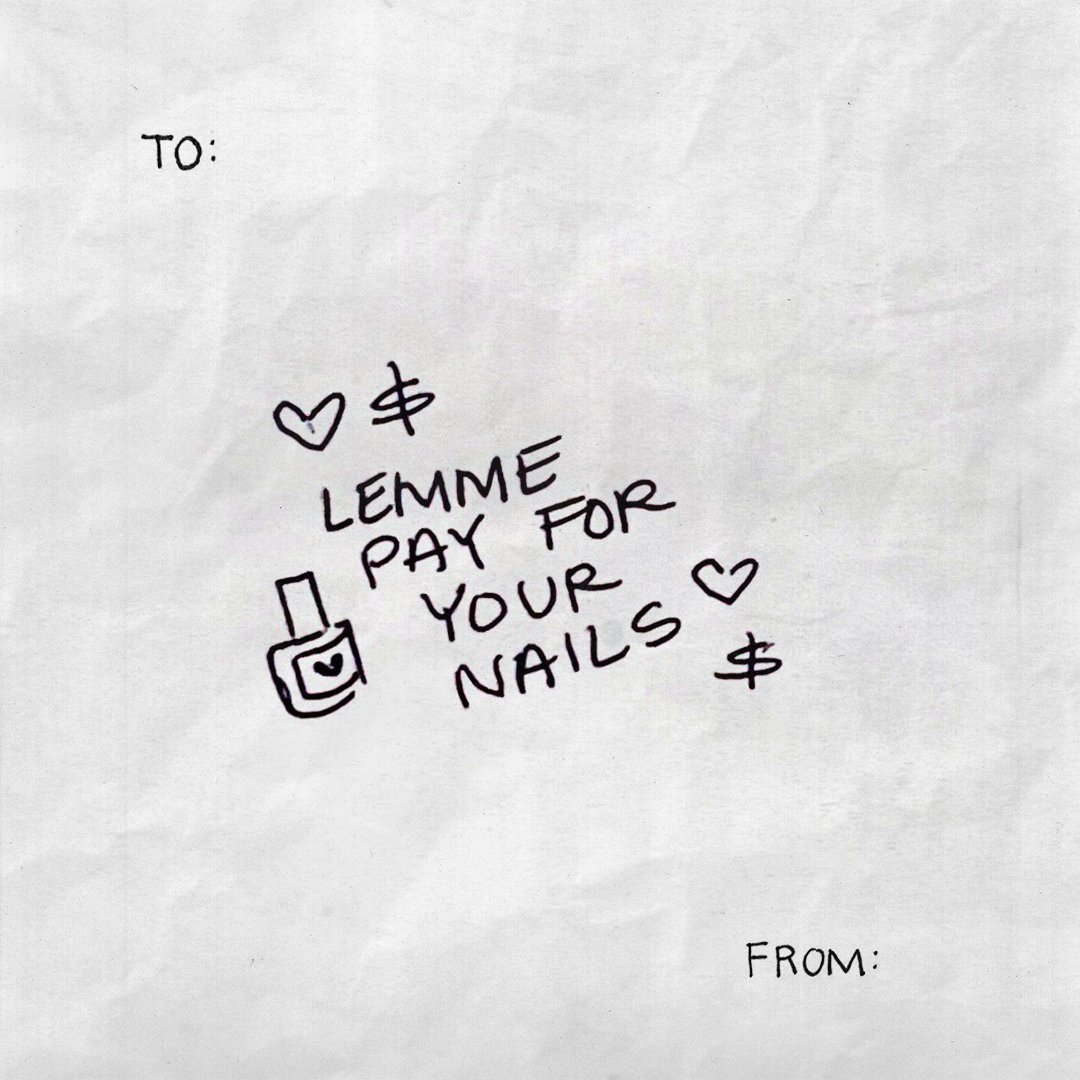 TO:
$
LEMME
PAY FOR
YOUR
NAILS
$
FROM: